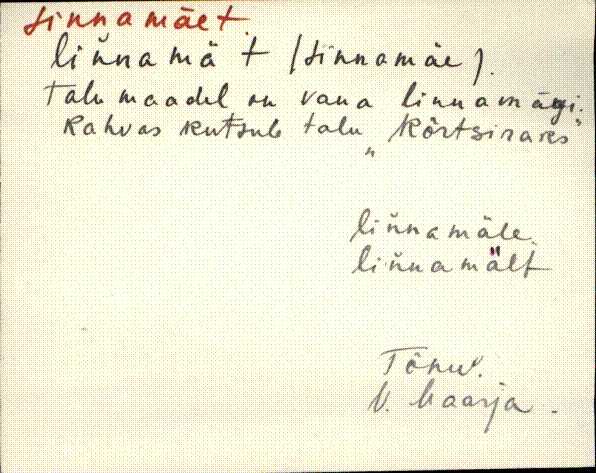 Linnamäet
liňnamä t (Linnamäe).
Talu maadel on vana linnamägi.
Rahvas kutsub talu „Kõrtsiraks"
liňnamäle.
liňnamält
Tõnu.
V. Maarja.